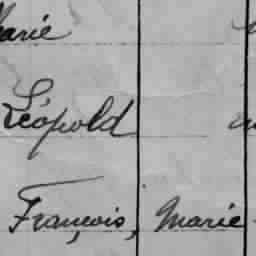 Marie
Léopold
François, Marie